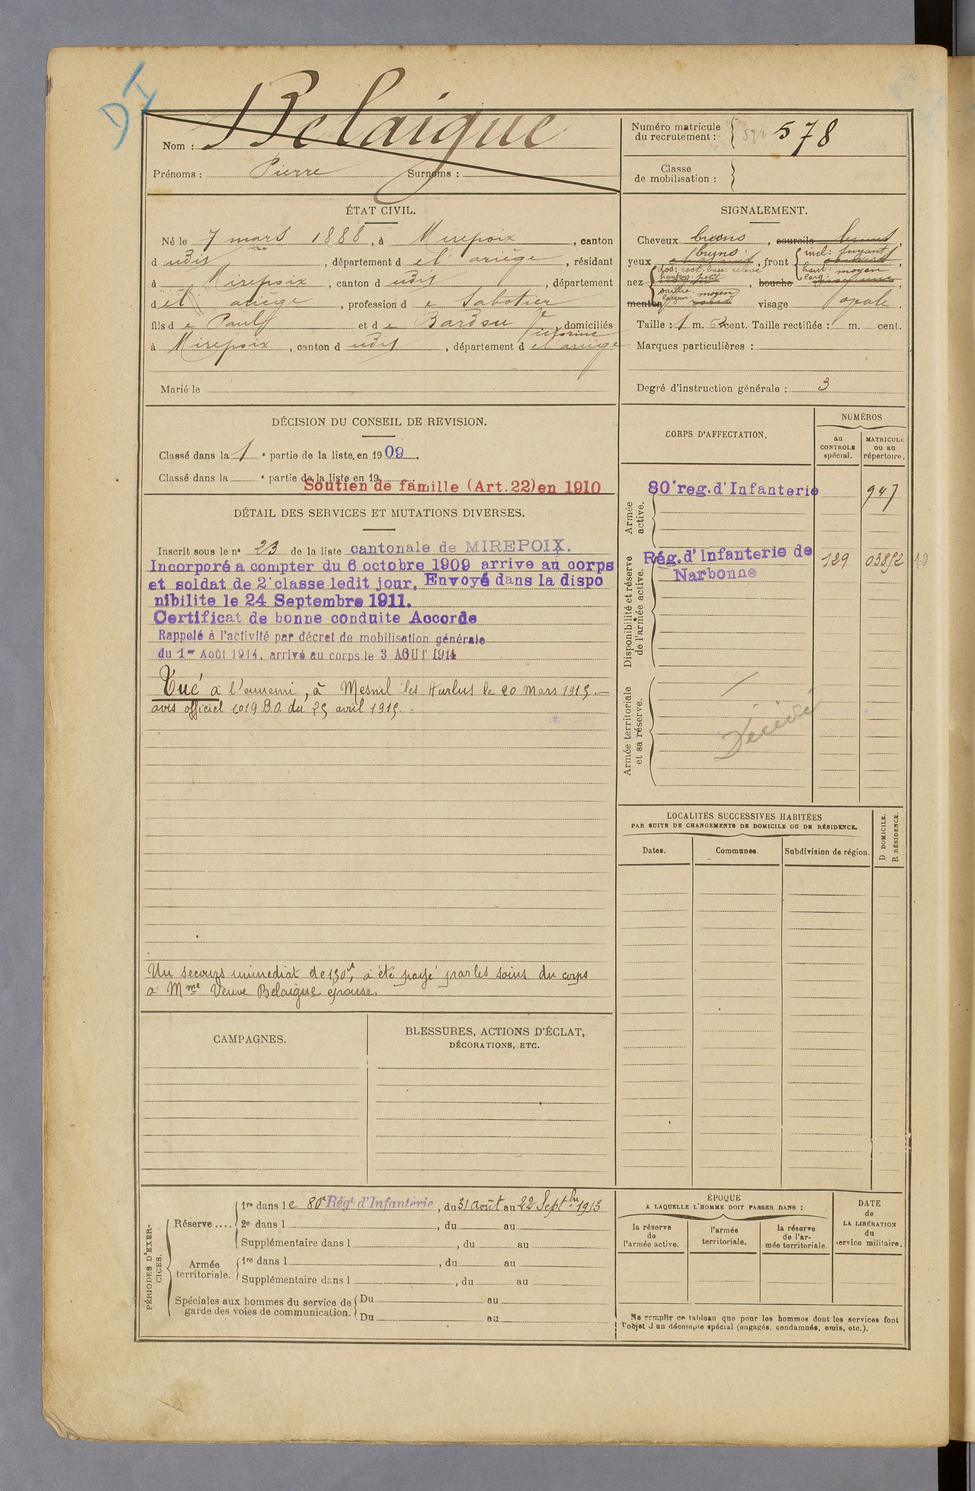 DI
Nom : Belaigue
Prénoms : Pierre Surnoms :
Numéro matricule du recrutement : 578
Classe de mobilisation :
ÉTAT CIVIL.
Né le 7 mars 1888, à Mirepoix, canton
d udit, département d el' ariège, résidant
à Mirepoix, canton d udit, département
d el' ariège, profession d e Sabotier
fils d e Paul et d e Bardou Victorine, domiciliés
à Mirepoix, canton d udit, département d el' ariège
Marié le
SIGNALEMENT.
Cheveux bruns, sourcils bruns
yeux bruns, front incl: fuyant
haut: moyen
larg: moyen
nez dos: rect. base: relevé
haut: petit
saillie: moyen
larg: moyen
bouche
menton visage ovale
Taille : 1 m. cent. Taille rectifiée : 1 m. cent.
Marques particulières :
Degré d'instruction générale : 3
DÉCISION DU CONSEIL DE REVISION.
Classé dans la 1 e partie de la liste, en 1909.
Classé dans la e partie de la liste en 19
Soutien de famille (Art.22) en 1910
DÉTAIL DES SERVICES ET MUTATIONS DIVERSES.
Inscrit sous le n° 23 de la liste cantonale de MIREPOIX.
Incorporé a compter du 6 octobre 1909 arrive au corps
et soldat de 2e classe ledit jour, Envoyé dans la dispo
nibilite le 24 Septembre 1911.
Certificat de bonne conduite Accorde
Rappelé à l'activité par décret de mobilisation générale
du 1er Août 1914, arrivé au corps le 3 AOUT 1914
Tué a l'ennemi, à Mesnil les Hurlus le 20 mars 1915 —
avis officiel 6019 B.O. du 25 avril 1915. -
Un secours immediat de 150f, a été payé par les soins du corps
a Mme Veuve Belaigue épouse.
CORPS D'AFFECTATION.
NUMÉROS
au CONTROLE spécial.
MATRICULE ou au répertoire.
Armée active.
80e reg. d'Infanterie 947
Disponibilité et réserve de l'armée active.
Rég. d'Infanterie de Narbonne 129
Armée territoriale et sa réserve.
Décédé
LOCALITÉS SUCCESSIVES HABITÉES
PAR SUITE DE CHANGEMENTS DE DOMICILE OU DE RÉSIDENCE.
Dates. Communes. Subdivision de région.
D DOMICILE.
R RÉSIDENCE.
CAMPAGNES.
BLESSURES, ACTIONS D'ÉCLAT,
DÉCORATIONS, ETC.
PÉRIODES D'EXERCICES.
Réserve....
1re dans le 80e Régt d'Infanterie, du 31 août au 22 Septbre 1913
2e dans l , du au
Supplémentaire dans l , du au
Armée territoriale.
1re dans l , du au
Supplémentaire dans l , du au
Spéciales aux hommes du service de garde des voies de communication.
Du au
Du au
ÉPOQUE
A LAQUELLE L'HOMME DOIT PASSER DANS :
la réserve de l'armée active.
l'armée territoriale.
la réserve de l'armée territoriale.
DATE de LA LIBÉRATION du service militaire.
Ne remplir ce tableau que pour les hommes dont les services font
l'objet d'un décompte spécial (engagés, condamnés, omis, etc.).